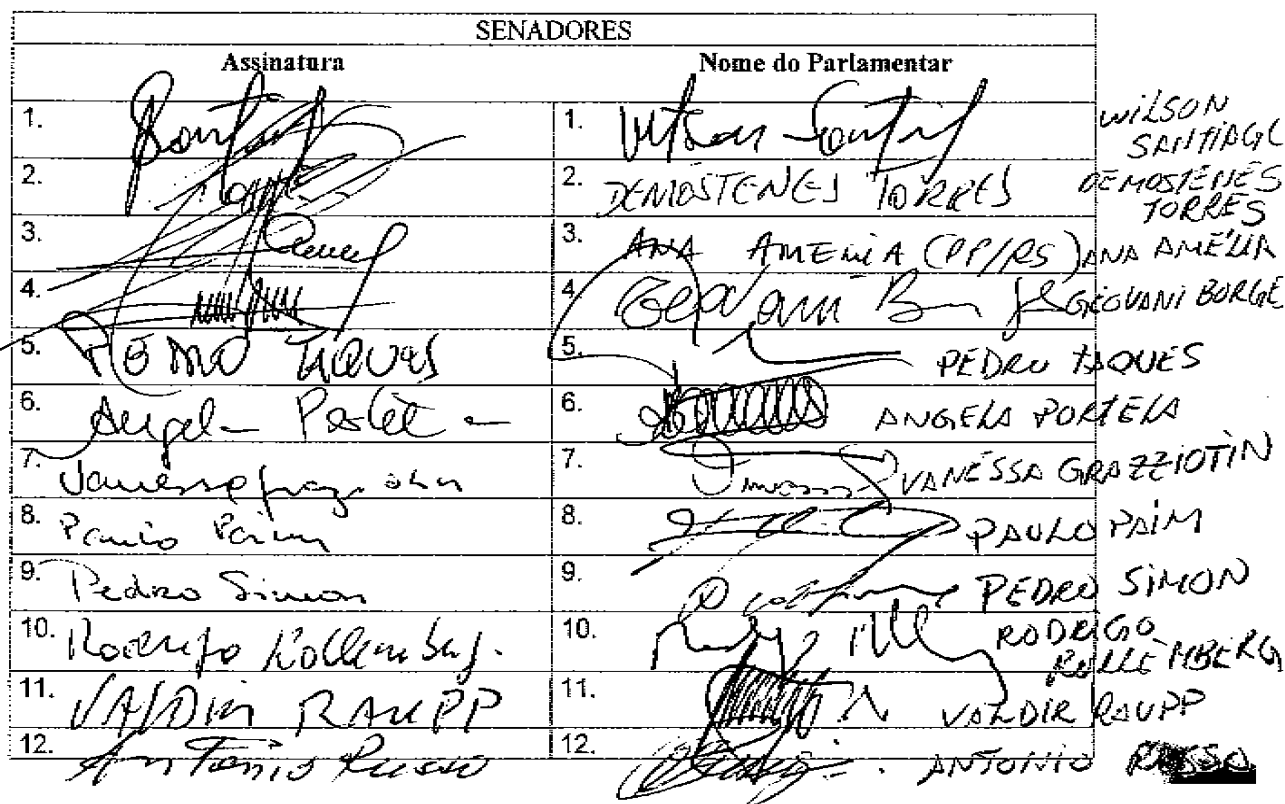 SENADORES
Assinatura Nome do Parlamentar
1. 1. Wilson Santiago WILSON SANTIAGO
2. 2. DEMOSTENES TORRES DEMOSTENES TORRES
3. 3. ANA AMELIA (PP/RS) ANA AMÉLIA
4. 4. Geovani Borges GEOVANI BORGE
5. PEDRO TAQUES 5. PEDRO TAQUES
6. Angela Portela 6. ANGELA PORTELA
7. Vanessa Grazziotin 7. VANESSA GRAZZIOTIN
8. Paulo Paim 8. PAULO PAIM
9. Pedro Simon 9. PEDRO SIMON
10. Rodrigo Rollemberg. 10. RODRIGO ROLLEMBERG
11. VALDIR RAUPP 11. VALDIR RAUPP
12. Antonio Russo 12. ANTONIO RUSSO